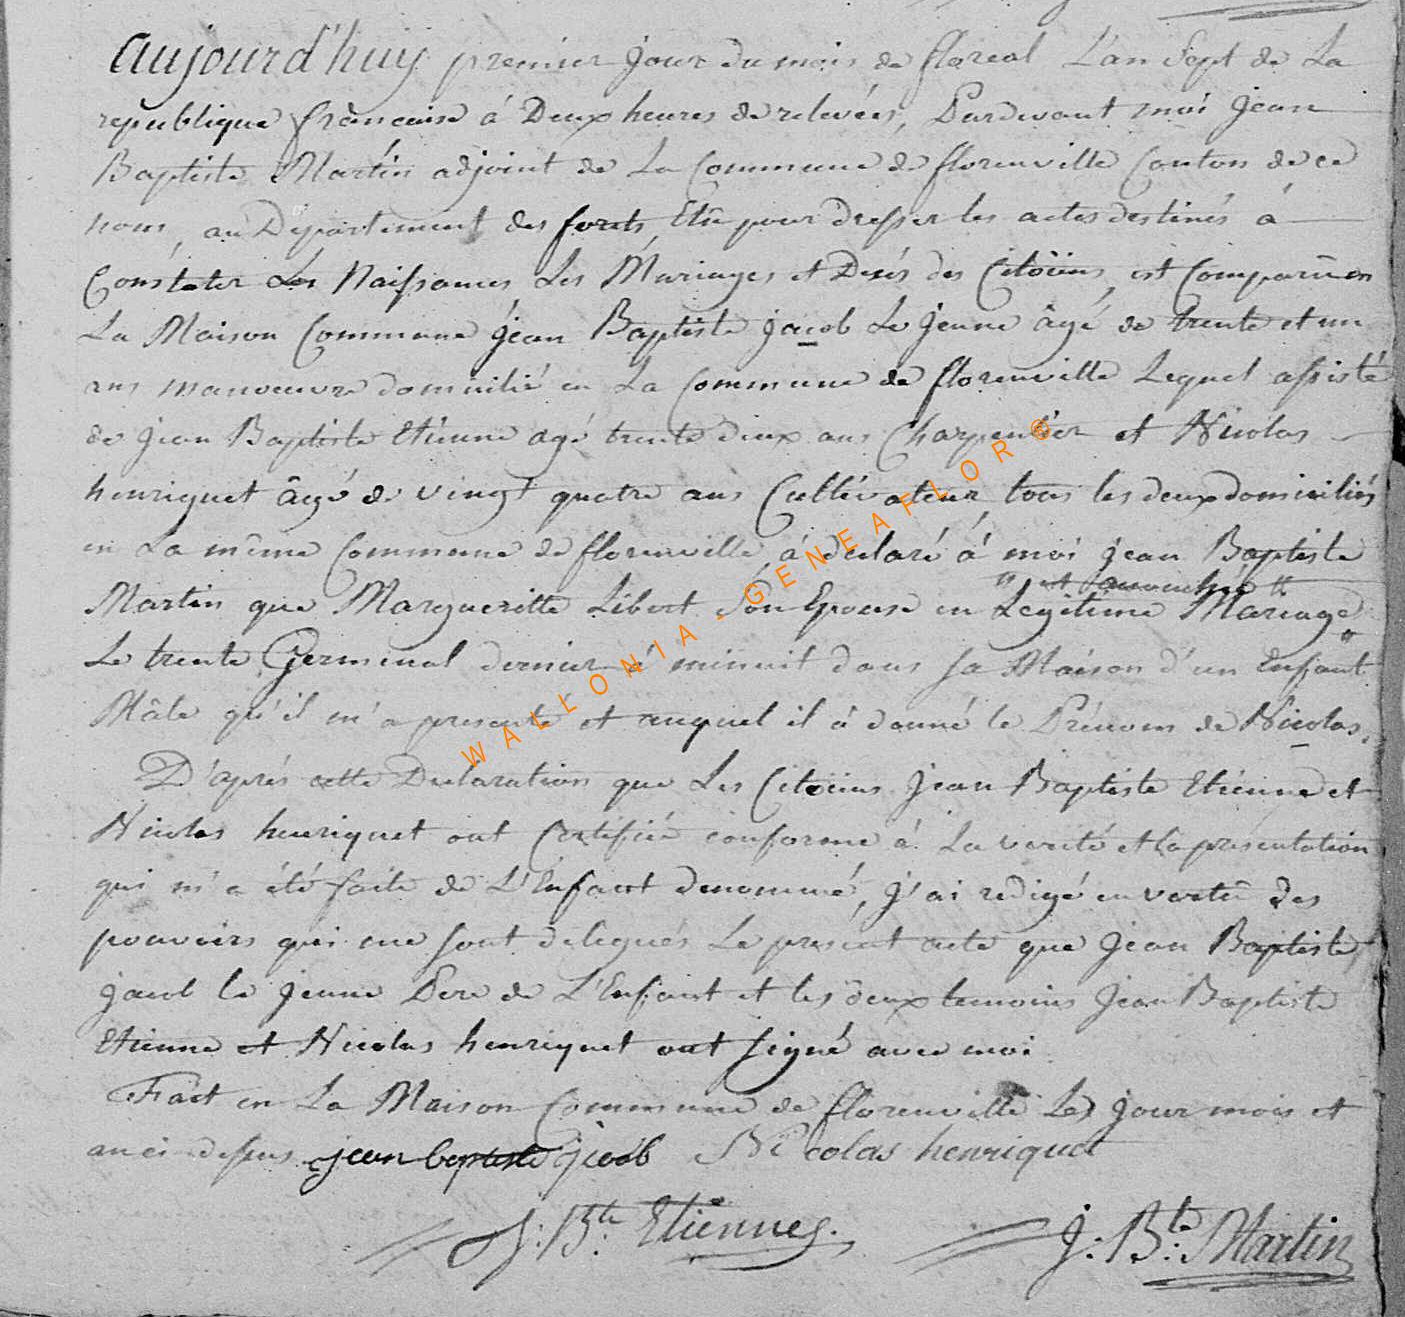 Aujourd'huy premier jour du mois de floréal L'an Sept de La
republique française à Deux heures de relevées, Pardevant moi Jean
Baptiste Martin adjoint de La Commune de florenville Canton de ce
nom, au Département des forets Elû pour dresser les actes destinés à
Constater Les Naissances Les Mariages et Decés des Citoïens, est Comparû en
La Maison Commune jean Baptiste jacob Le Jeune âgé de trente et un
ans manoeuvre domicilié en La Commune de florenville Lequel assisté
de jean Baptiste Etienne agé trente deux ans Charpentier et Nicolas
henriquet âgé de vingt quatre ans Cultivateur, tous les deux domiciliés
en La même Commune de florenville à déclaré à moi jean Baptiste
" est accouchée "
Martin que Margueritte Libert Son Epouse en Legitime Mariage "
Le trente Germinal dernier à minuit dans sa Maison d'un Enfant
Mâle qu'il m'a presenté et auquel il à donné le Prénom de Nicolas.
D'aprés cette Declaration que Les Citoïens Jean Baptiste Etienne et
Nicolas henriquet ont Certifiée conforme à La verité et la présentation
qui m'a été faite de L'Enfant denommé, j'ai redigé en vertû des
pouvoirs qui me sont delegués Le présent acte que Jean Baptiste
jacob le jeune Pere de L'Enfant et les deux temoins Jean Baptiste
Etienne et Nicolas henriquet ont signé avec moi.
Fait en La Maison Commune de florenville Les jour mois et
an ci-dessus jean baptiste jacob Nicolas henriquet
J: Bte. Etienne J: Bte: Martin
WALLONIA - GENEAFLOR ©